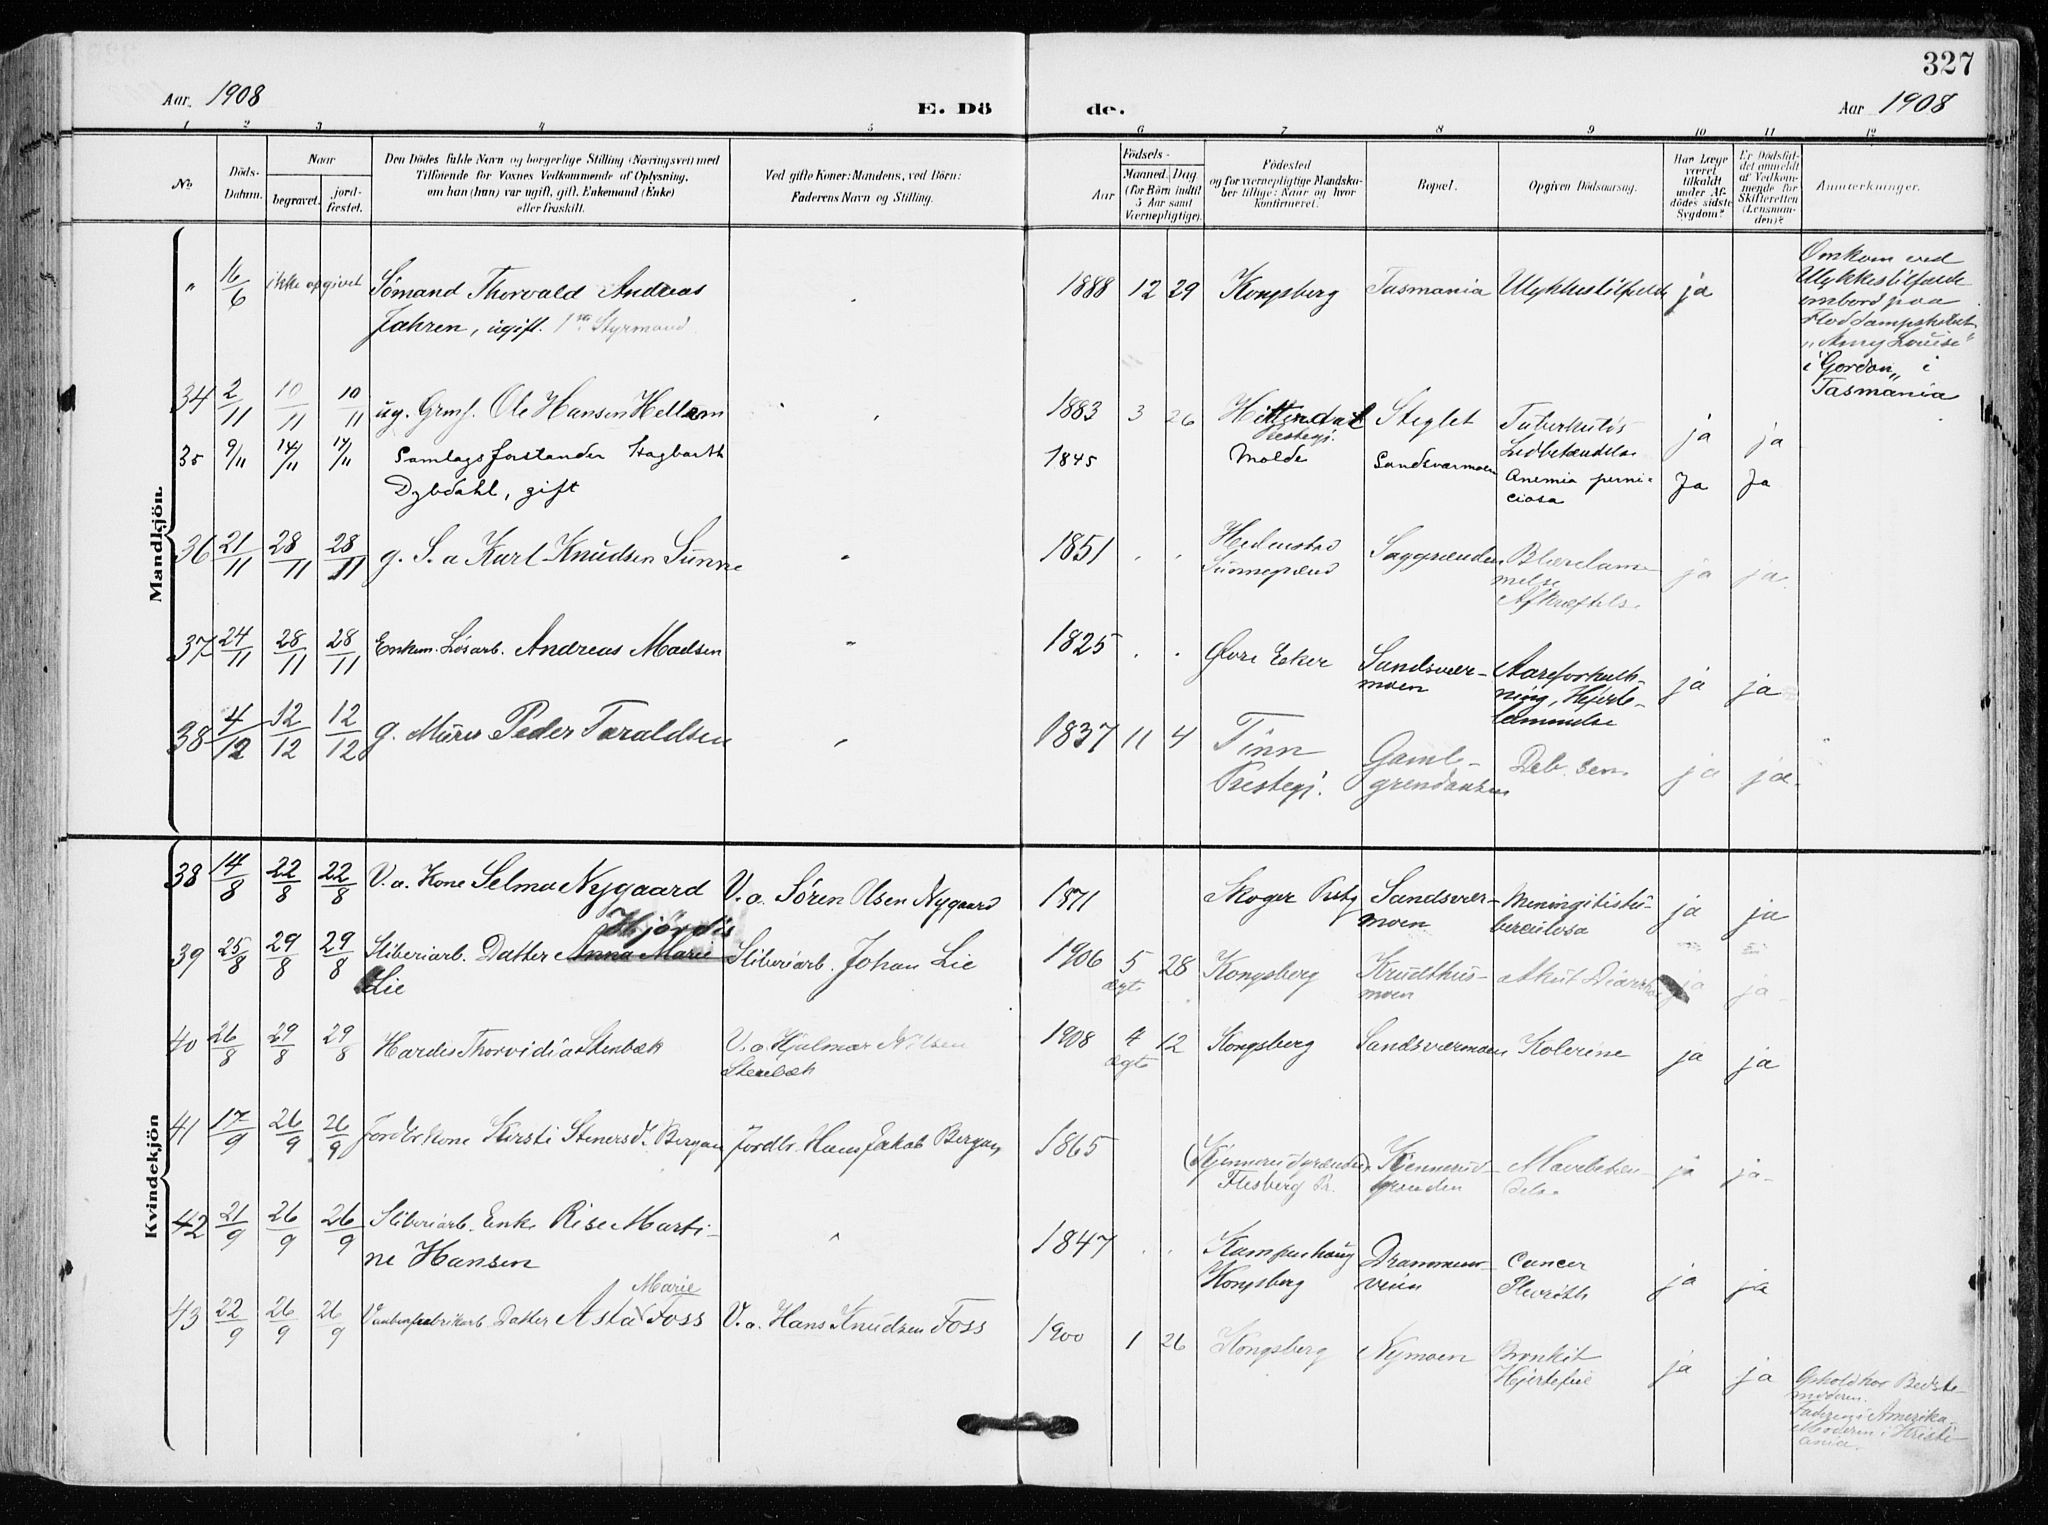 327
Aar 1908
E. Dö de.
Aar 1908
1 2 3 4 5 6 7 8 9 10 11 12
No.
Döds-Datum.
Naar
begravet.
jord-fæstet.
Den Dödes fulde Navn og borgerlige Stilling (Næringsvei) med
Tilföiende for Voxnes Vedkommende af Oplysning,
om han (hun) var ugift, gift, Enkemand (Enke)
eller fraskilt.
Ved gifte Koner: Mandens, ved Börn:
Faderens Navn og Stilling.
Födsels-
Aar
Maaned. Dag
(for Börn indtil
5 Aar samt
Værnepligtige).
Födested
og for værnepligtige Mandska-
ber tillige: Naar og hvor
Konfirmeret.
Bopæl.
Opgiven Dödsaarsag.
Har Læge
været
tilkaldt
under Af-
dödes sidste
Sygdom?
Er Dödsfal-
det anmeldt
af Vedkom-
mende for
Skifteretten
(Lensman-
den)?
Anmærkninger.
Mandkjön.
" 16/6 ikke opgivet Sömand Thorvald Andreas
Jahren, ugift. 1ste Styrmand
1888 12 29 Kongsberg Tasmania Ulykkestilfælde ja
Omkom ved
Ulykkestilfælde
ombord paa
Floddampskibet
"Amy Louise"
i Gordon" i
Tasmania
34 2/11 10/11 10/11 ug. Grmf. Ole Hansen Hellem 1883 3 26 Hitterdal
Prestegj. Steglet Tuberkuløs
Ledbetændelse ja ja
35 9/11 14/11 17/11 Samlagsforstander Hagbarth
Dybdahl, gift 1845 Molde Sandsværmoen Anemia perni-
ciosa Ja Ja
36 21/11 28/11 28/11 g. S. a Karl Knudsen Sunne 1851 Hedenstad
Sunnegrænd Saggrænden Blærelam-
melse
Afkræftelse ja ja
37 24/11 28/11 28/11 Enkem. Løsarb. Andreas Madsen 1825 Øvre Eker Sandsvær-
moen Aareforkalk-
ning, Hjerte-
lammelse ja ja
38 4/12 12/12 12/12 g. Murer Peder Taraldsen 1837 11 4 Tinn
Prestegj. Gamle-
grendaasen Deb. sen. ja ja
Kvindekjön
38 14/8 22/8 22/8 V.a. Kone Selma Nygaard V.a. Søren Olsen Nygaard 1871 Skoger Prstg Sandsvær-
moen Meningitistu-
berculosa ja ja
Hjördis
39 25/8 29/8 29/8 Sliberiarb. Datter Anna Marie
Lie Sliberiarb. Johan Lie 1906 5 28
ægte Kongsberg Krudthus-
moen Akut Diarrhoe ja ja
40 26/8 29/8 29/8 Hardis Thorvidia Stenbæk V.a. Hjalmar Nilsen
Stenbæk 1908 4 12
ægte Kongsberg Sandsværmoen Kolerine ja ja
41 17/9 26/9 26/9 Jordbr Kone Kirsti Stenersd. Bergan Jordbr. Hans Jakob Bergan 1865 (Kjennerudgrænden)
Flesberg Pr. Kjennerud-
grænden Mavebeten-
delse ja ja
42 21/9 26/9 26/9 Sliberiarb. Enke Rise Marti-
ne Hansen 1847 Kampenhaug
Kongsberg Drammens-
veien Cancer
Plevritt ja ja
Marie
43 22/9 26/9 26/9 Vaabenfabrikarb. Datter Asta Foss V.a. Hans Knudsen Foss 1900 1 26 Kongsberg Nymoen Bronkit
Hjertefeil ja ja
Ophold hos Bedste-
moderen.
Faderen i Amerika.
Moderen i Kristi-
ania.